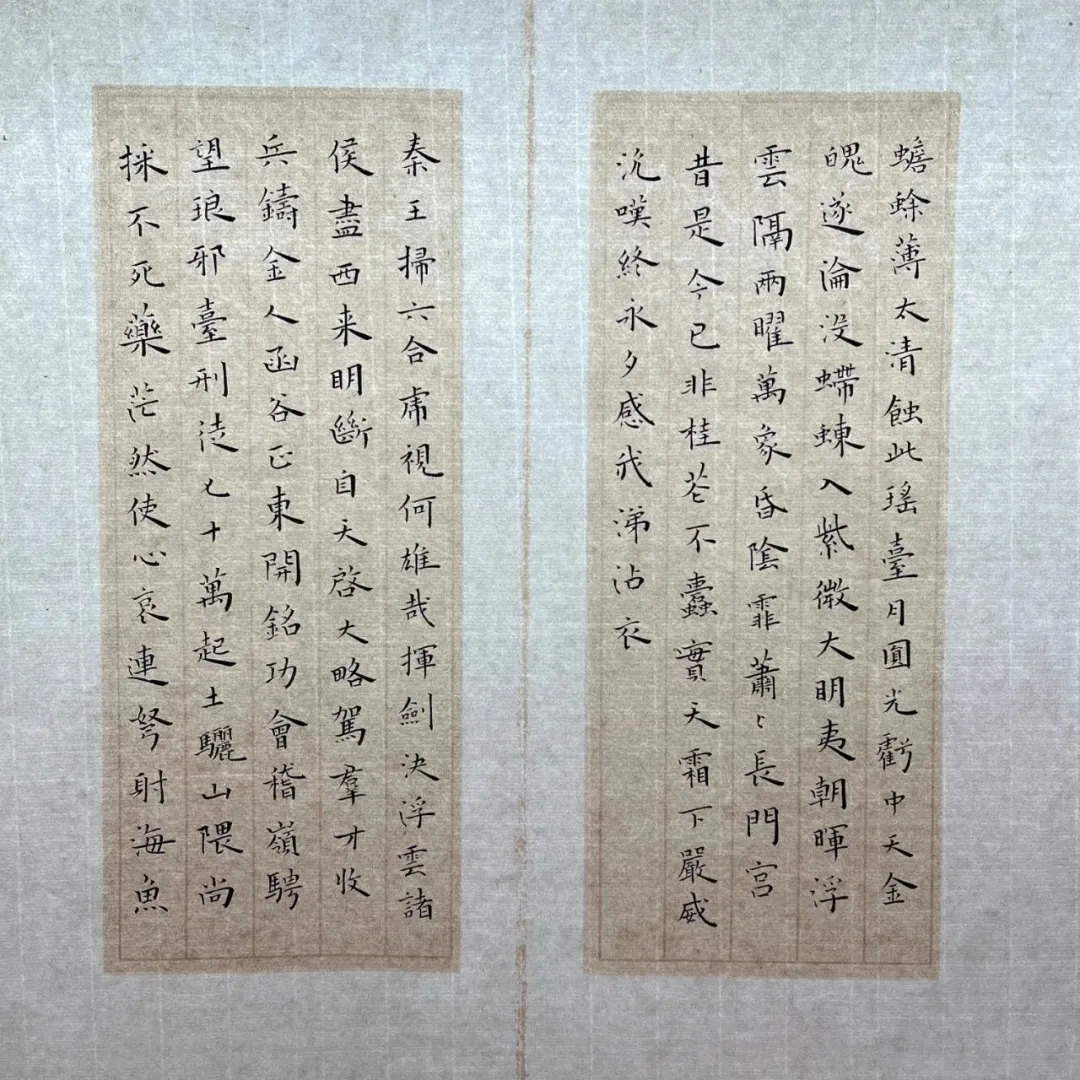 蟾蜍薄太清蝕此瑤臺月圓光虧中天金
魄遂淪没螮蝀入紫微大明夷朝暉浮
雲隔兩曜萬象昏陰霏蕭〻長門宮
昔是今已非桂花不蠹實天霜下嚴威
沉嘆終永夕感我涕沾衣
秦王掃六合虎視何雄哉揮劍決浮雲諸
侯盡西来明斷自天啓大略駕羣才收
兵鑄金人函谷正東開銘功會稽嶺騁
望琅邪臺刑徒七十萬起土驪山隈尚
採不死藥茫然使心哀連弩射海魚